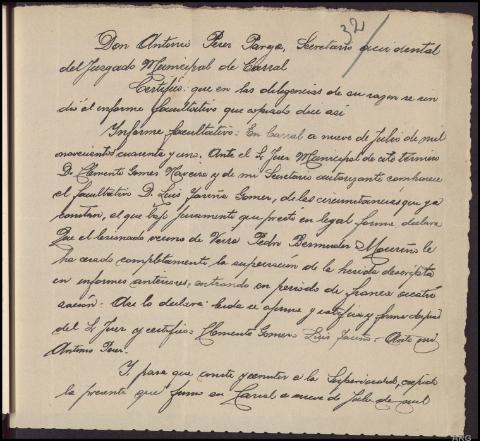 32
Don Antonio Perez Parga, Secretario accidental
del Juzgado Municipal de Carral
Certifico: que en las diligencias de su razon se rin
dió el informe facultativo que copiado dice así
Informe facultativo = En Carral a nueve de Julio de mil
novecientos cuarenta y uno. Ante el Sr Juez Municipal de este término
D. Clemente Gomez y de mi Secretario autorizante comparece
el facultativo D. Luis Fariña Gomez, de las circunstancias que ya
constan, el que bajo juramento que prestó en legal forma declara
Que el lesionado vecino de Veira Pedro Bermudez Mouriño le
ha cesado completamente la supuración de la herida descripta
en informes anteriores, entrando en periodo de franca cicatri
zación = Asi lo declara leida se afirma y ratifica y firma después
del Sr Juez y certifico = Clemente Gomez = Luis Fariña = Ante mi
Antonio Perez.
Y para que conste y remitir a la Superioridad, expido
la presente que firmo en Carral a nueve de Julio de mil